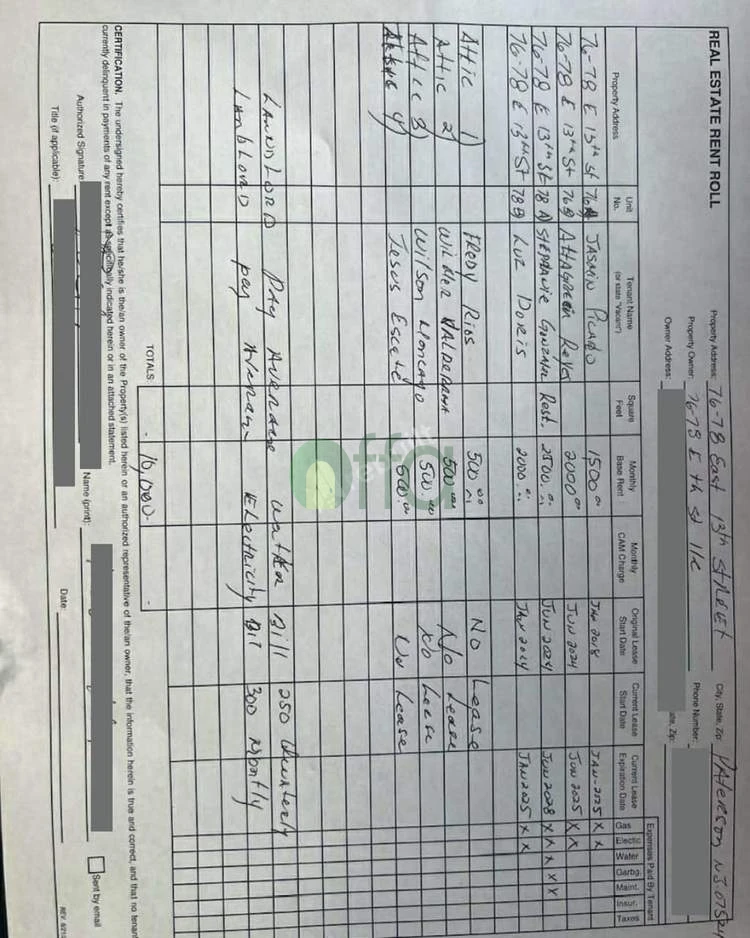 REAL ESTATE RENT ROLL
Property Address: 76-78 East 13th STREET City, State, Zip: PATERSON NJ.07524
Property Owner: 76-78 E th st llc Phone Number:
Owner Address: ate, Zip:
Expenses Paid By Tenant
Property Address Unit No. Tenant Name (or state "Vacant") Square Feet Monthly Base Rent Monthly CAM Charge Original Lease Start Date Current Lease Start Date Current Lease Expiration Date Gas Electric Water Garbg. Maint. Insur. Taxes
76-78 E 13th St 76A JASMIN PICADO 1500 JAN 2018 JAN-2025 X X
76-78 E 13th St 76B Reyes 2000 JUN 2024 JUN 2025 X X
76-78 E 13th St 78 A STEPHANIE Rest. 2500 JUN 2024 JUN 2028 X X X X X
76-78 E 13th St 78B LUZ DORIS 2000 JAN 2024 JAN 2025 X X
Attic 1) FREDY RIOS 500 No Lease
Attic 2 WILDER 500 No Lease
Attic 3) Wilson 500 No Lease
4) Jesus No Lease
LANDLORD PAY AVERAGE Water Bill 250 Quarterly
LANDLORD pay Average Electricity Bil 300 Montly
TOTALS: - 10,000- -
CERTIFICATION. The undersigned hereby certifies that he/she is the/an owner of the Property(s) listed herein or an authorized representative of the/an owner, that the information herein is true and correct, and that no tenant
currently delinquent in payments of any rent except as specifically indicated herein or in an attached statement.
Authorized Signature: Name (print): Sent by email
Title (if applicable): Date:
REV. 8/21
offa